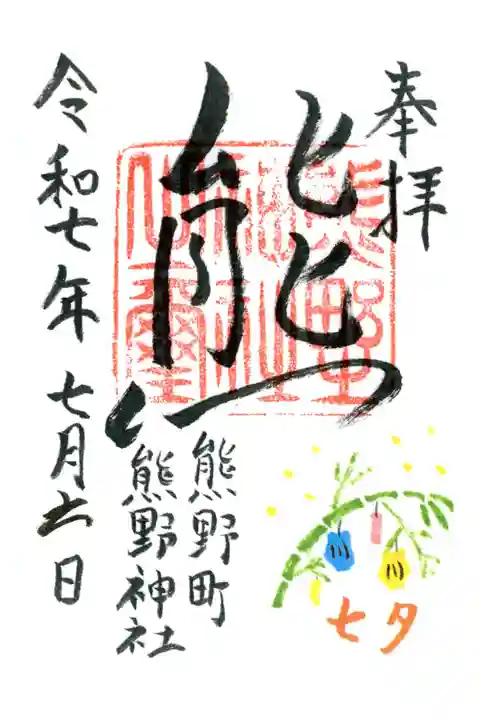 奉拝
熊
熊野町
熊野神社
令和七年七月十一日
七夕